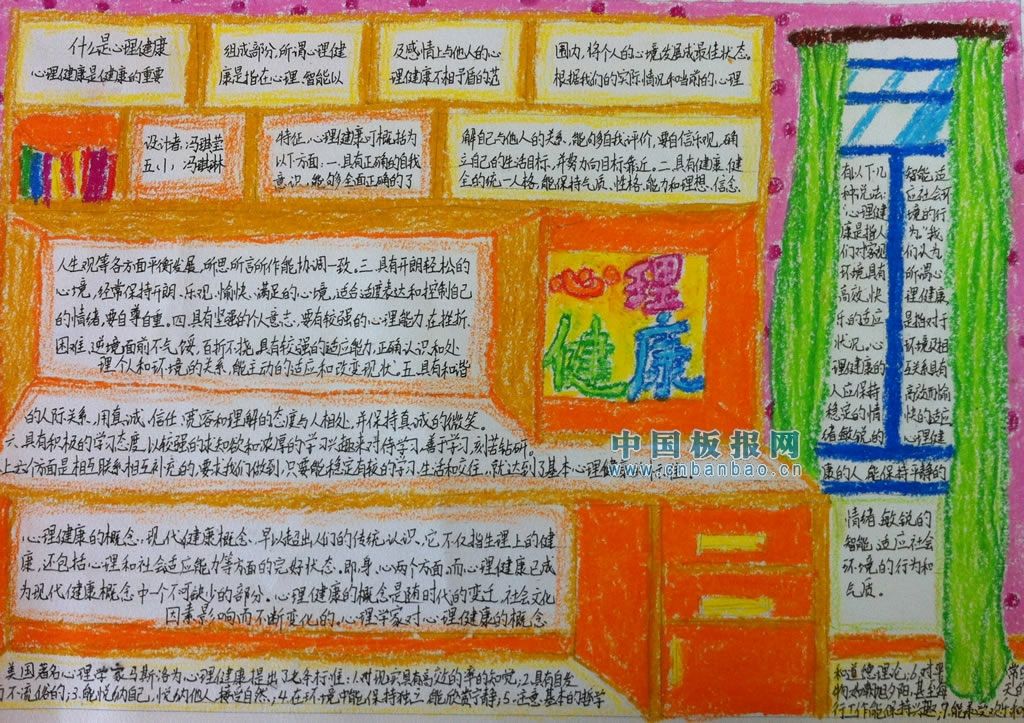 什么是心理健康
心理健康是健康的重要
组成部分,所谓心理健
康是指在心理、智能以
及感情上与他人的心
理健康不相矛盾的范
围内,将个人的心境发展成最佳状态。
根据我们的实际情况和当前的心理
设计者:冯琪莹
五、小:冯琪琳
特征,心理健康可概括为
以下方面:一、具有正确的自我
意识,能够全面正确的了
解自己与他人的关系,能够自我评价,要自信乐观,确
立自己的生活目标,并努力向目标靠近。二、具有健康、健
全的统一人格,能保持气质、性格、能力和理想、信念、
人生观等各方面平衡发展,所思所言所作能协调一致。三、具有开朗轻松的
心境,经常保持开朗、乐观、愉快、满足的心境,适合适度表达和控制自己
的情绪,要自尊自重。四、具有坚强的个人意志,要有较强的心理能力,在挫折、
困难、逆境面前不气馁,百折不挠,具有较强的适应能力,正确认识和处
理个人和环境的关系,能主动的适应和改变现状。五、具有和谐
的人际关系,用真诚、信任、宽容和理解的态度与人相处,并保持真诚的微笑。
六、具有积极的学习态度,以较强的求知欲和浓厚的学习兴趣来对待学习,善于学习,刻苦钻研。
上六个方面是相互联系相互补充的,要求我们做到,只要能稳定有效的学习、生活和交往,就达到了基本心理健康的标准。
心理
健康
中国板报网
www.cnbanbao.cn
心理健康的概念,现代健康概念,早以超出人们的传统认识,它不仅指生理上的健
康,还包括心理和社会适应能力等方面的完好状态,即身、心两个方面,而心理健康已成
为现代健康概念中一个不可缺少的部分。心理健康的概念是随时代的变迁、社会文化
因素影响而不断变化的,心理学家对心理健康的概念
有以下几
种说法:
“心理健
康是指人
们对客观
环境具有
高效、快
乐的适应
状况,心
理健康的
人应保持
稳定的情
绪敏锐的
智能,适
应社会环
境的行
为”我
们认为
所谓心
理健康,
是指对于
环境及相
互关系具有
高效而愉
快的适应
心理健
康的人,能保持平静的
情绪、敏锐的
智能、适应社会
环境的行为和
气质。
美国著名心理学家马斯洛为心理健康提出了七条标准:1.对现实具有高效的率的知觉;2.具有自发
而不流俗的;3.能悦纳自己,悦纳他人,接受自然;4.在环境中能保持独立,能欣赏宁静;5.注意基本的哲学
和道德理论;6.对平常的